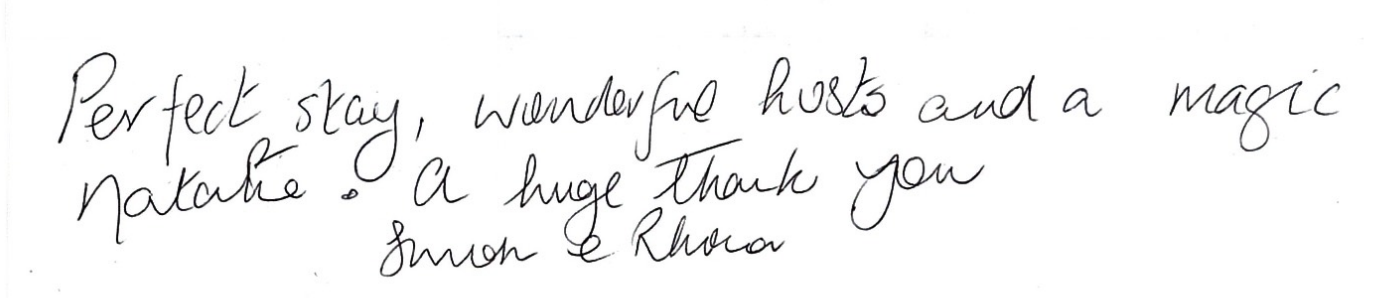 Perfect stay, wonderful hosts and a magic
Natalie. A huge thank you
Simon e